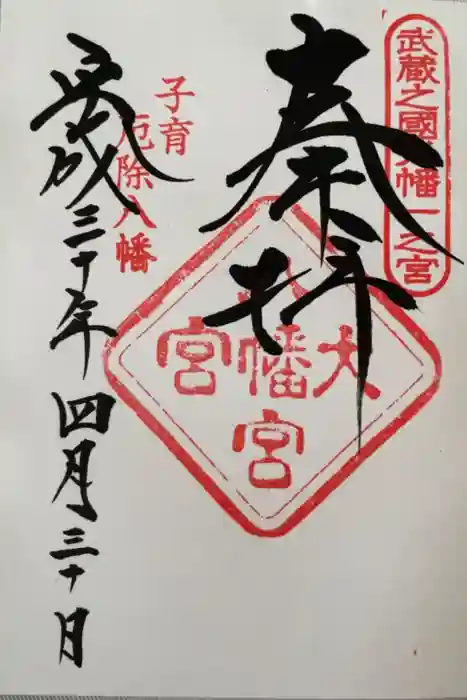 武蔵之國八幡一之宮
奉拝
大宮
八幡宮
子育
厄除八幡
平成三十年四月三十日